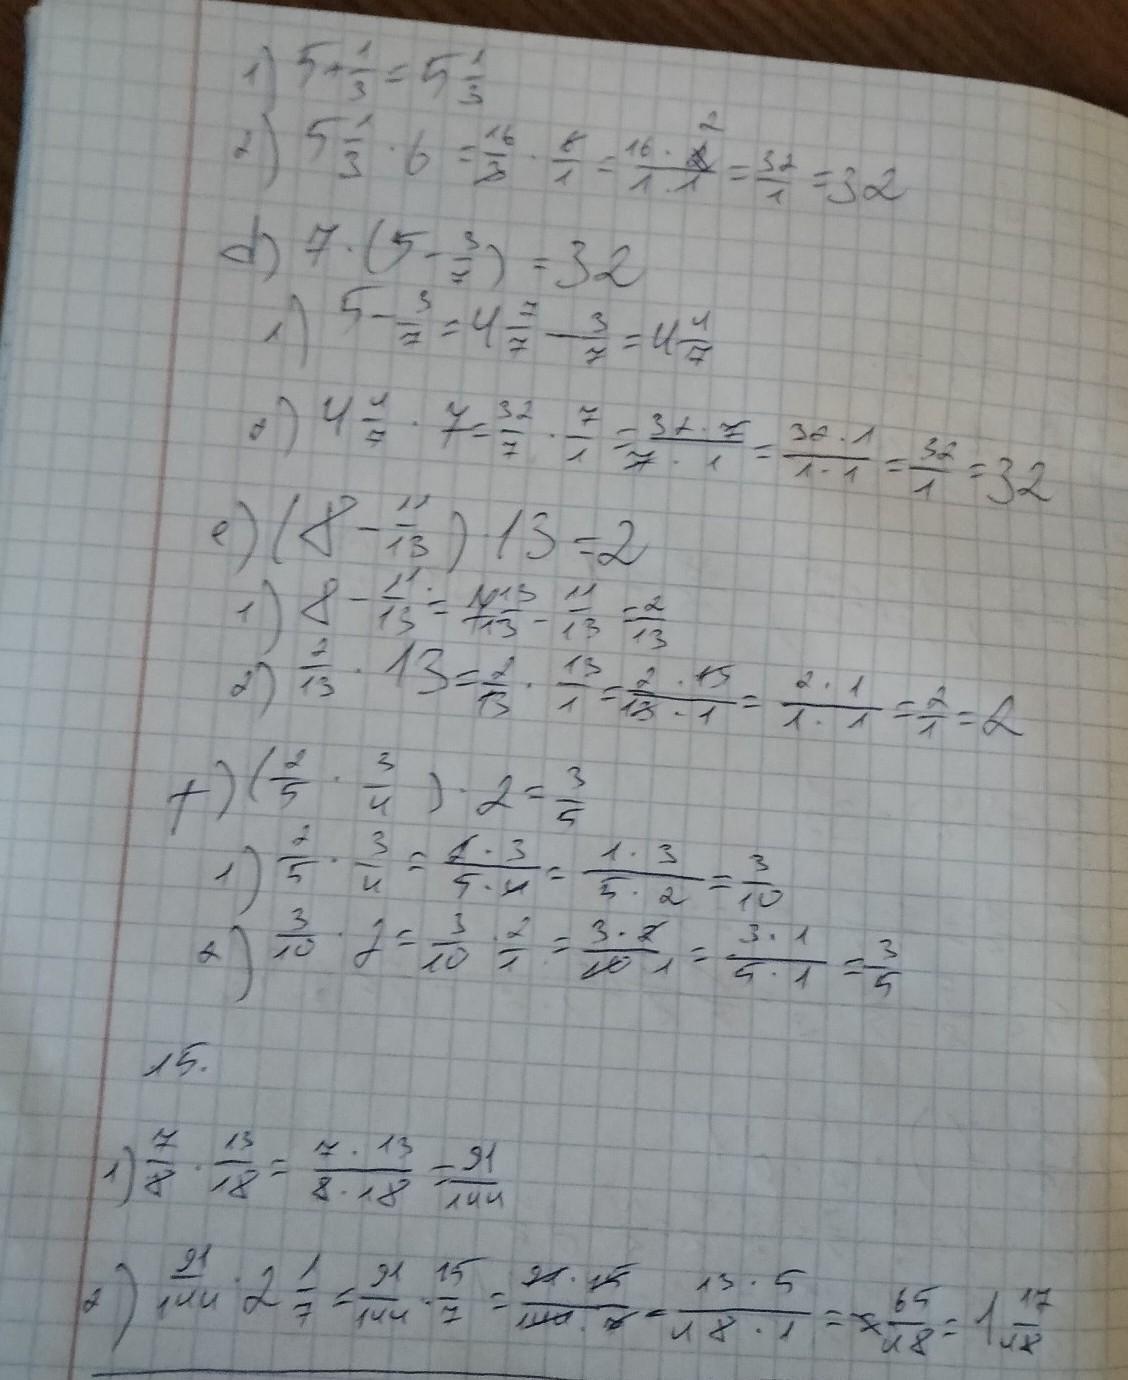 1) 5 + 1/3 = 5 1/3
2) 5 1/3 · 6 = 16/3 · 6/1 = 16 · 6 2/1 · 1 = 32/1 = 32
d) 7 · (5 - 3/7) = 32
1) 5 - 3/7 = 4 7/7 - 3/7 = 4 4/7
2) 4 4/7 · 7 = 32/7 · 7/1 = 32 · 7/7 · 1 = 32 · 1/1 · 1 = 32/1 = 32
e) (8 - 11/13) · 13 = 2
1) 8 - 11/13 = 13/13 - 11/13 = 2/13
2) 2/13 · 13 = 2/13 · 13/1 = 2 · 13/13 · 1 = 2 · 1/1 · 1 = 2/1 = 2
f) (2/5 · 3/4) · 2 = 3/5
1) 2/5 · 3/4 = 2 · 3/5 · 4 = 1 · 3/5 · 2 = 3/10
2) 3/10 · 2 = 3/10 · 2/1 = 3 · 2/10 1 = 3 · 1/5 · 1 = 3/5
15.
1) 7/8 · 13/18 = 7 · 13/8 · 18 = 91/144
2) 91/144 · 2 1/7 = 91/144 · 15/7 = 91 · 15/144 · 7 = 13 · 5/48 · 1 = 65/48 = 1 17/48